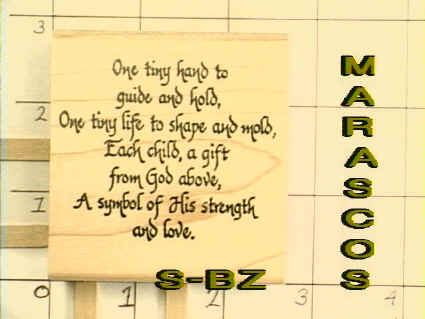 3
2
1
0
1
2
3
4
One tiny hand to
guide and hold,
One tiny life to shape and mold,
Each child, a gift
from God above,
A symbol of His strength
and love.
MARASCOS
S-BZ